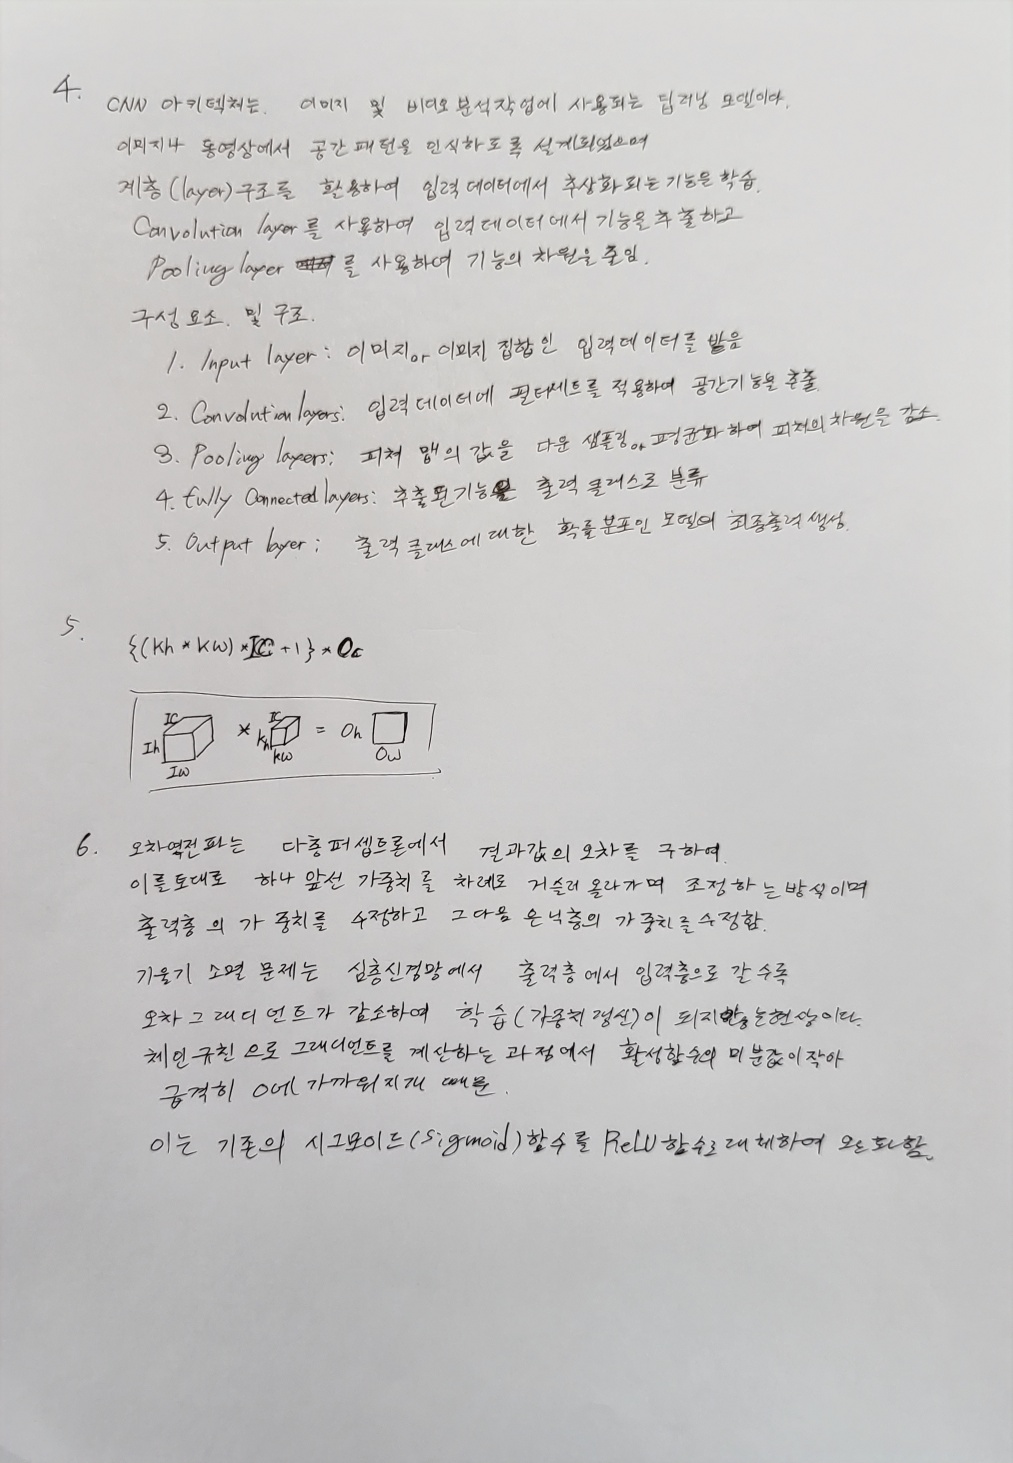 4. CNN 아키텍쳐는. 이미지 및 비디오 분석작업에 사용되는 딥러닝 모델이다.
이미지나 동영상에서 공간 패턴을 인식하도록 설계되었으며
계층(layer)구조를 활용하여 입력 데이터에서 추상화되는 기능을 학습.
Convolution layer를 사용하여 입력데이터에서 기능을 추출하고
Pooling layer 를 사용하여 기능의 차원을 줄임.
구성요소. 및 구조.
1. Input layer: 이미지or 이미지 집합인 입력데이터를 받음
2. Convolution layers: 입력데이터에 필터세트를 적용하여 공간기능을 추출.
3. Pooling layers: 피쳐 맵의 값을 다운 샘플링or 평균화하여 피쳐의 차원을 감소.
4. fully Connected layers: 추출된기능을 출력 클래스로 분류
5. Output layer: 출력 클래스에 대한 확률분포인 모델의 최종출력 생성.
5. {(Kh * Kw) * IC + 1} * Oc
IC IC
Ih * Kh = Oh
Iw Kw Ow
6. 오차역전파는 다층퍼셉트론에서 결과값의 오차를 구하여.
이를토대로 하나 앞선 가중치를 차례로 거슬러 올라가며 조정하는방식이며
출력층의 가중치를 수정하고 그다음 은닉층의 가중치를수정함.
기울기 소멸 문제는 심층신경망에서 출력층에서 입력층으로 갈수록
오차그래디언트가 감소하여 학습(가중치갱신)이 되지않는현상이다.
체인규칙으로 그래디언트를 계산하는 과정에서 활성함수의 미분값이작아
급격히 0에 가까워지기 때문.
이는 기존의 시그모이드(Sigmoid)함수를 ReLU함수로대체하여 완화함.